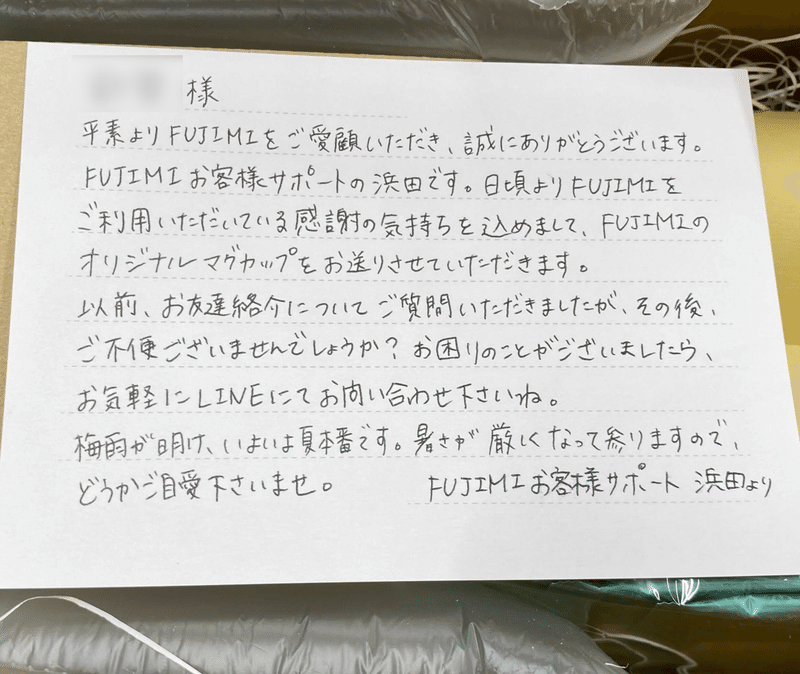 様
平素よりFUJIMIをご愛顧いただき、誠にありがとうございます。
FUJIMIお客様サポートの浜田です。日頃よりFUJIMIを
ご利用いただいている感謝の気持ちを込めまして、FUJIMIの
オリジナルマグカップをお送りさせていただきます。
以前、お友達紹介についてご質問いただきましたが、その後、
ご不便ございませんでしょうか？お困りのことがございましたら、
お気軽にLINEにてお問い合わせ下さいね。
梅雨が明け、いよいよ夏本番です。暑さが厳しくなって参りますので、
どうかご自愛下さいませ。 FUJIMIお客様サポート 浜田より